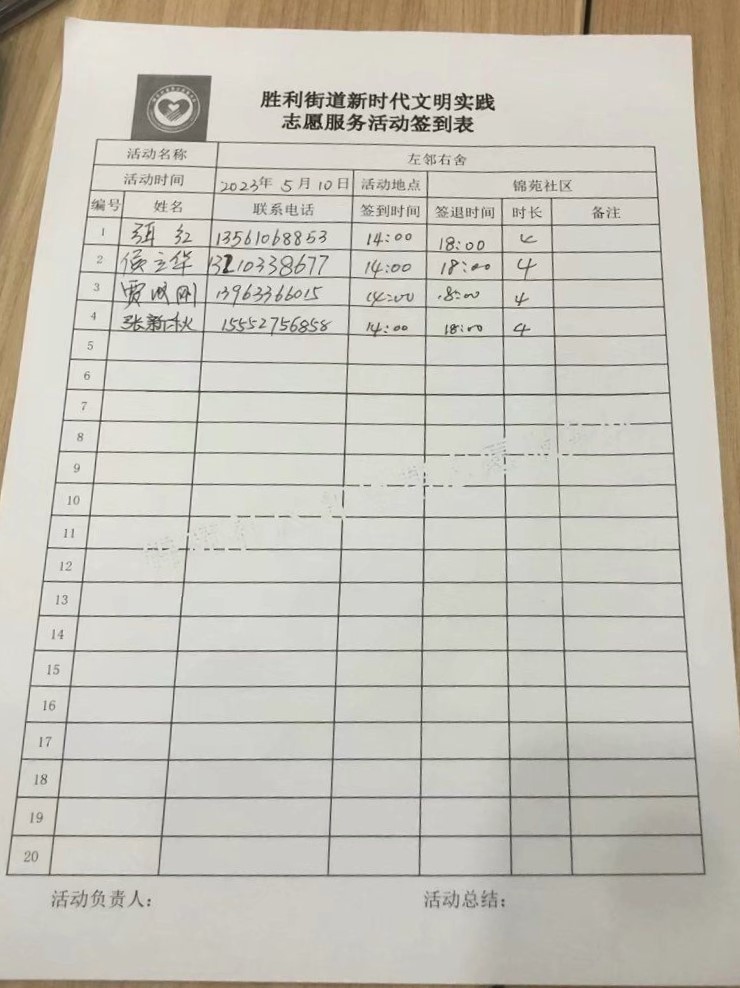 胜利街道新时代文明实践
志愿服务活动签到表
活动名称 左邻右舍
活动时间 2023年5月10日 活动地点 锦苑社区
编号 姓名 联系电话 签到时间 签退时间 时长 备注
1 红 13561068853 14:00 18:00 4
2 侯立华 13210338677 14:00 18:00 4
3 贾 刚 13963366015 14:00 18:00 4
4 张新秋 15552756858 14:00 18:00 4
5
6
7
8
9
10
11
12
13
14
15
16
17
18
19
20
活动负责人: 活动总结: